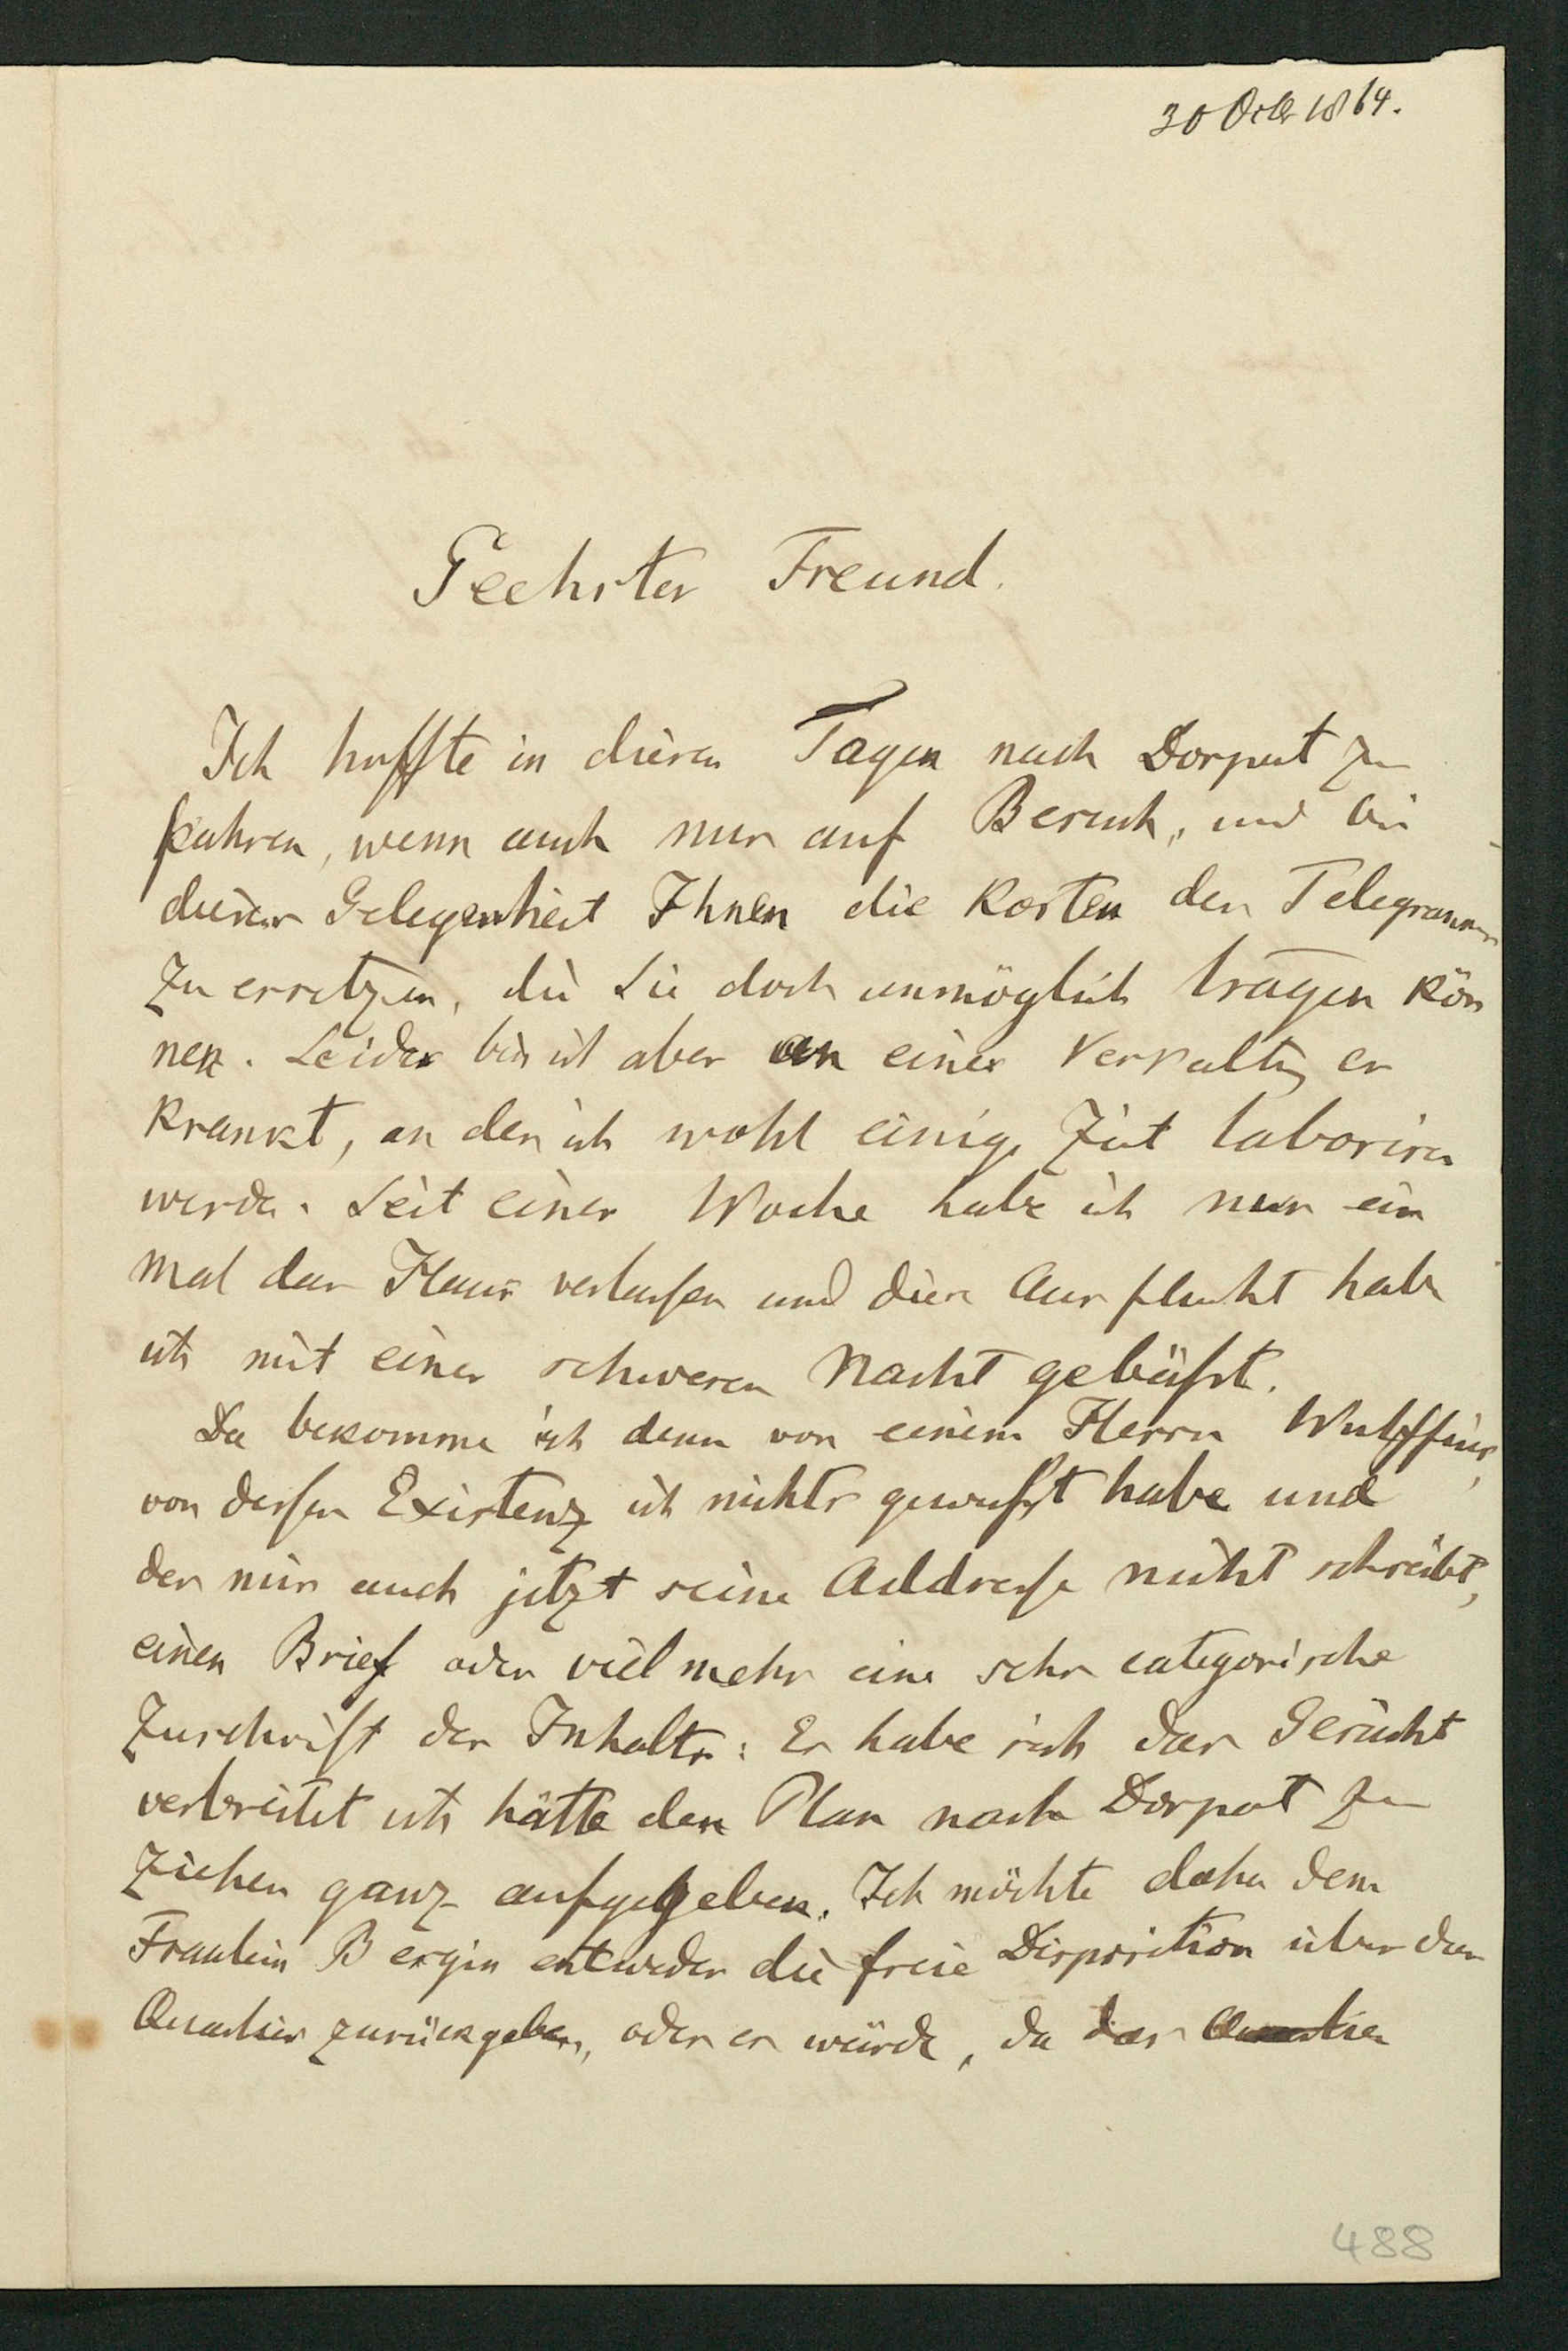 30 Octbr 1864.
Geehrter Freund.
Ich hoffte in diesen Tagen nach Dorpat zu
fahren, wenn auch nur auf Besuch, und bei
dieser Gelegenheit Ihnen die Kosten des Telegramms
zu ersetzen, die Sie doch unmöglich tragen kön
nen. Leider bin ich aber an einer Verkältung er
krankt, an der ich wohl einige Zeit laboriren
werde. Seit einer Woche habe ich nur ein
mal das Haus verlassen und diese Ausflucht habe
ich mit einer schweren Nacht gebüßt.
Da bekomme ich denn von einem Herrn Wulffius,
von dessen Existenz ich nichts gewußt habe und
der mir auch jetzt seine Addresse nicht schreibt,
einen Brief oder vielmehr eine sehr categorische
Zuschrift des Inhalts: Es habe sich das Gerücht
verbreitet ich hätte den Plan nach Dorpat zu
ziehen ganz aufgegeben. Ich möchte daher dem
Fraulein Bergin entweder die freie Disposition über das
Quartier zurückgeben, oder er würde, da das Quartier
488